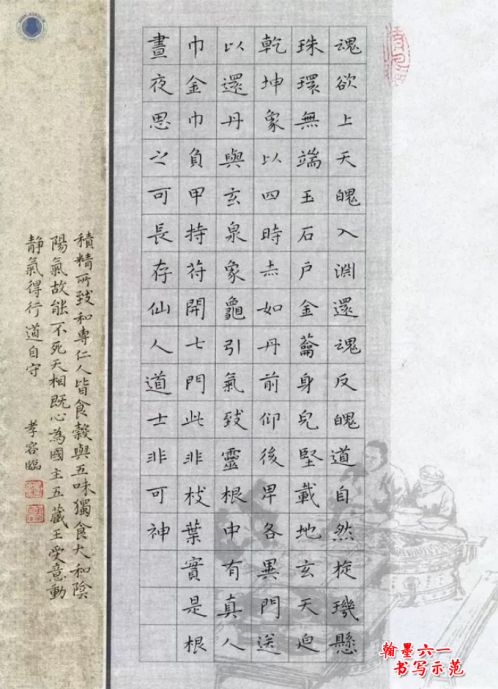 魂欲上天魄入淵還魂反魄道自然旋璣懸
珠環無端玉石戶金籥身皃堅載地玄天迫
乾坤象以四時赤如丹前仰後卑各異門送
以還丹與玄泉象龜引氣致靈根中有真人
巾金巾負甲持苻開七門此非枝葉實是根
晝夜思之可長存仙人道士非可神
積精所致和專仁人皆食穀與五味獨食大和陰
陽氣故能不死天相既心為國主五藏王受意動
静氣得行道自守
孝容臨
翰墨六一
书写示范